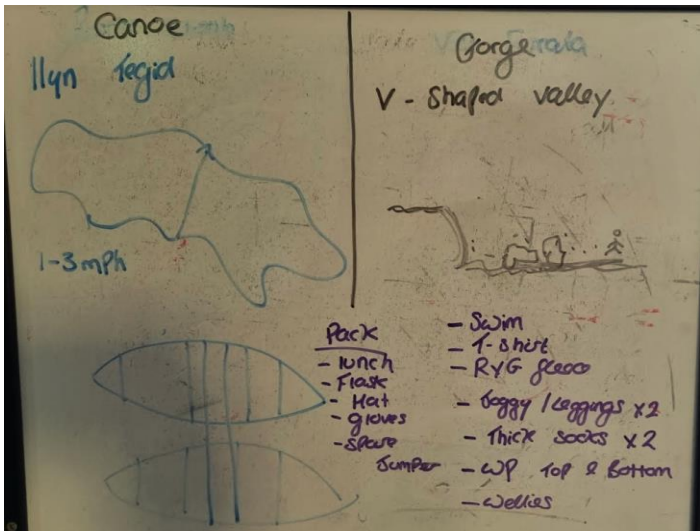 Canoe
llyn Tegid
1-3mph
Gorge
V - Shaped valley
Pack
- lunch
- Flask
- Hat
- gloves
- spare
Jumper
- Swim
- T-shirt
- RYG fleece
- Joggy / Leggings x2
- Thick socks x2
- WP Top & Bottom
- wellies